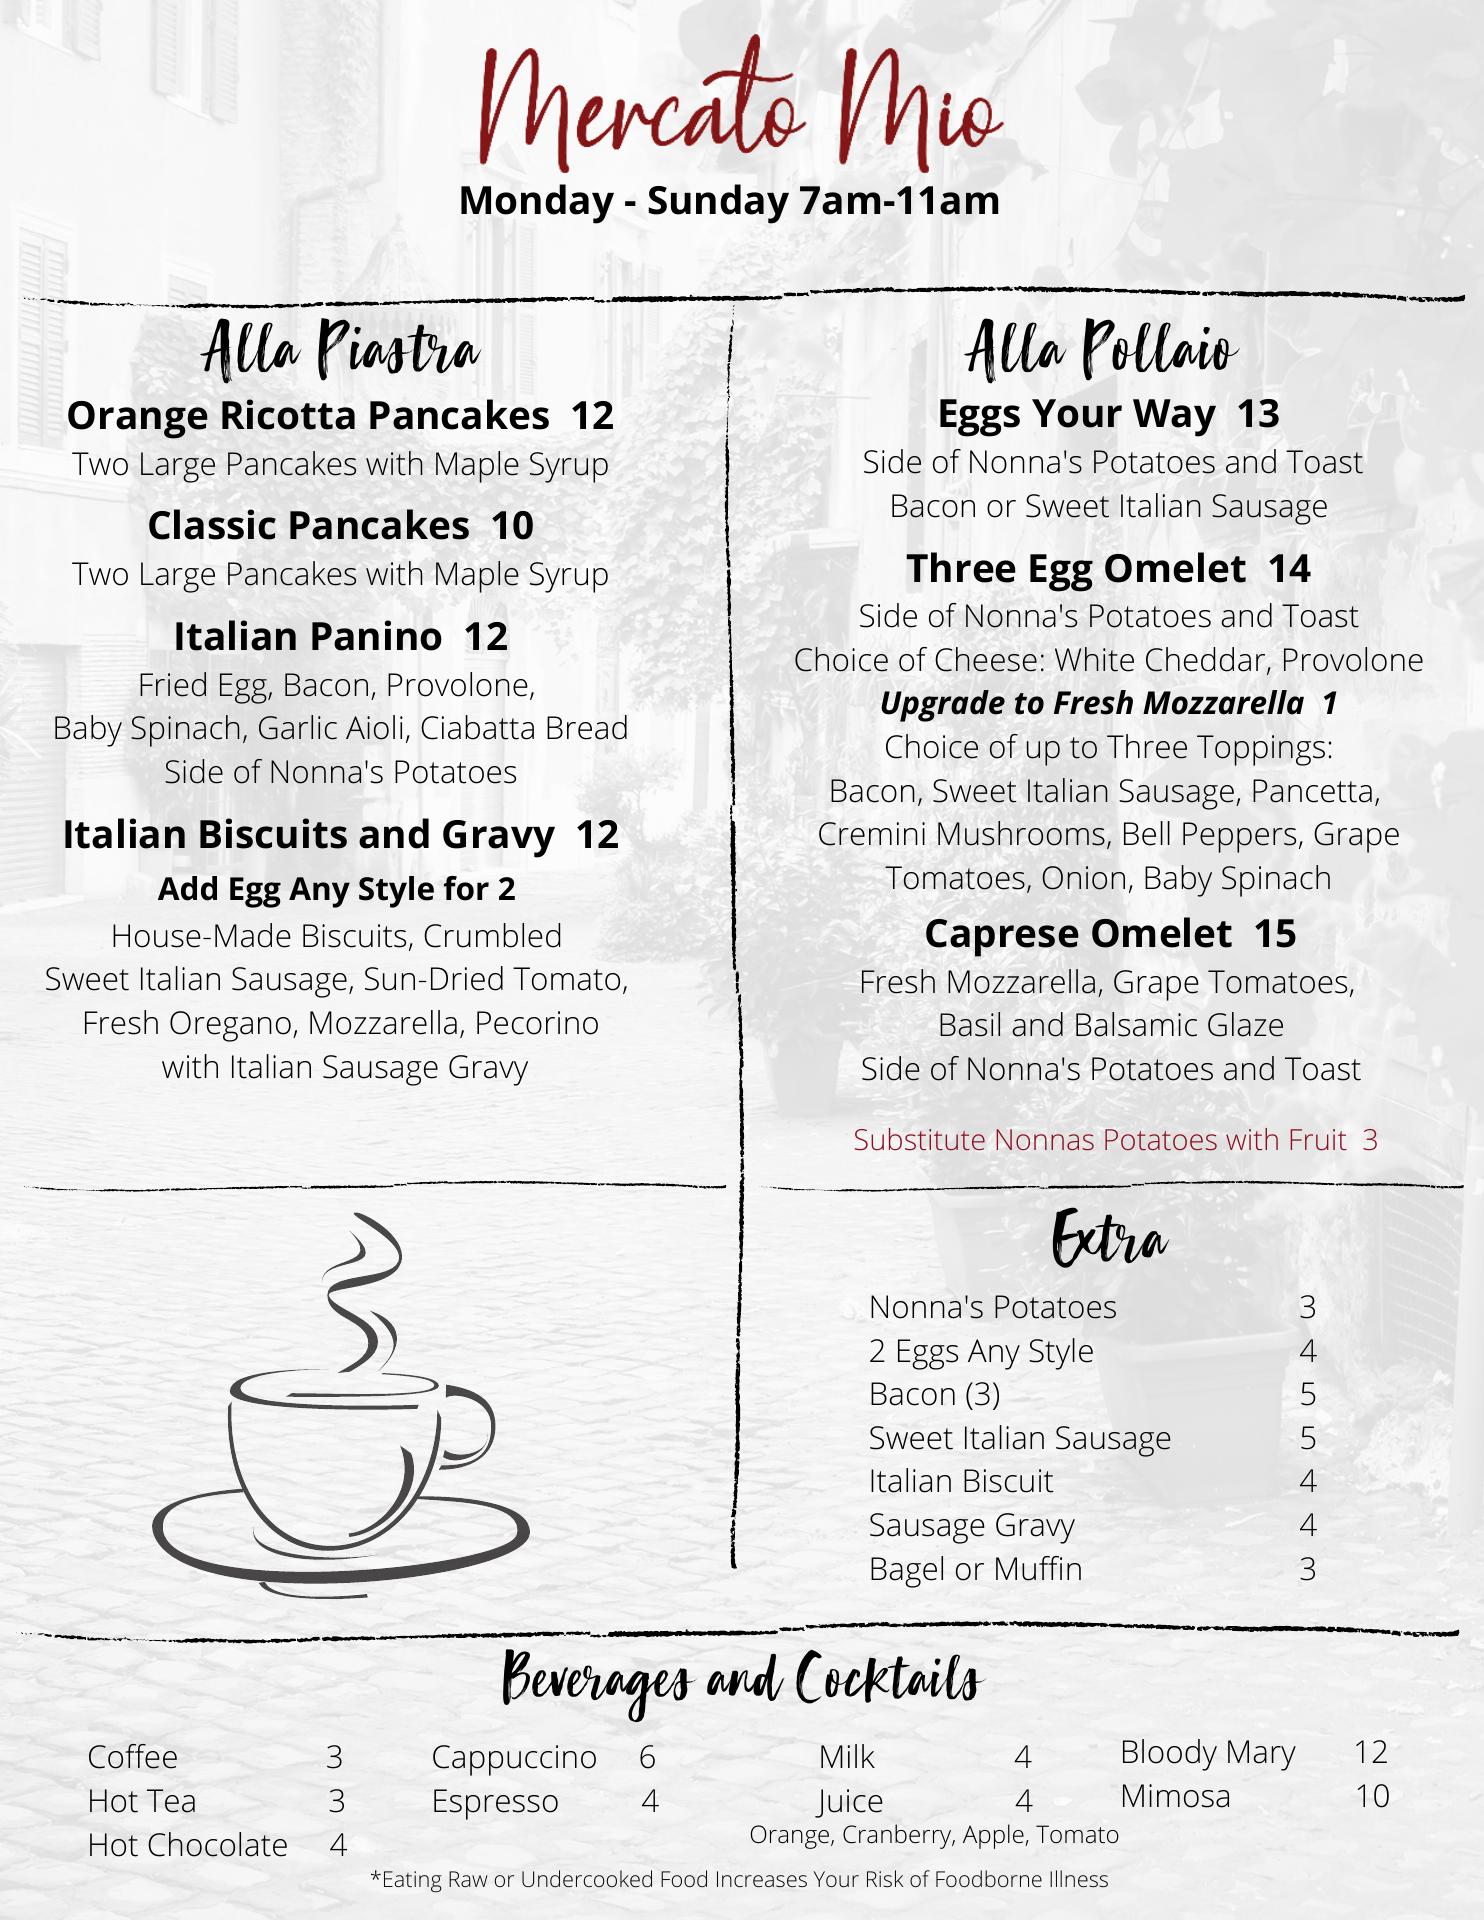 Mercato Mio
Monday - Sunday 7am-11am
Alla Piastra
Orange Ricotta Pancakes 12
Two Large Pancakes with Maple Syrup
Classic Pancakes 10
Two Large Pancakes with Maple Syrup
Italian Panino 12
Fried Egg, Bacon, Provolone,
Baby Spinach, Garlic Aioli, Ciabatta Bread
Side of Nonna's Potatoes
Italian Biscuits and Gravy 12
Add Egg Any Style for 2
House-Made Biscuits, Crumbled
Sweet Italian Sausage, Sun-Dried Tomato,
Fresh Oregano, Mozzarella, Pecorino
with Italian Sausage Gravy
Alla Pollaio
Eggs Your Way 13
Side of Nonna's Potatoes and Toast
Bacon or Sweet Italian Sausage
Three Egg Omelet 14
Side of Nonna's Potatoes and Toast
Choice of Cheese: White Cheddar, Provolone
Upgrade to Fresh Mozzarella 1
Choice of up to Three Toppings:
Bacon, Sweet Italian Sausage, Pancetta,
Cremini Mushrooms, Bell Peppers, Grape
Tomatoes, Onion, Baby Spinach
Caprese Omelet 15
Fresh Mozzarella, Grape Tomatoes,
Basil and Balsamic Glaze
Side of Nonna's Potatoes and Toast
Substitute Nonnas Potatoes with Fruit 3
Extra
Nonna's Potatoes 3
2 Eggs Any Style 4
Bacon (3) 5
Sweet Italian Sausage 5
Italian Biscuit 4
Sausage Gravy 4
Bagel or Muffin 3
Beverages and Cocktails
Coffee 3
Hot Tea 3
Hot Chocolate 4
Cappuccino 6
Espresso 4
Milk 4
Juice 4
Orange, Cranberry, Apple, Tomato
Bloody Mary 12
Mimosa 10
*Eating Raw or Undercooked Food Increases Your Risk of Foodborne Illness